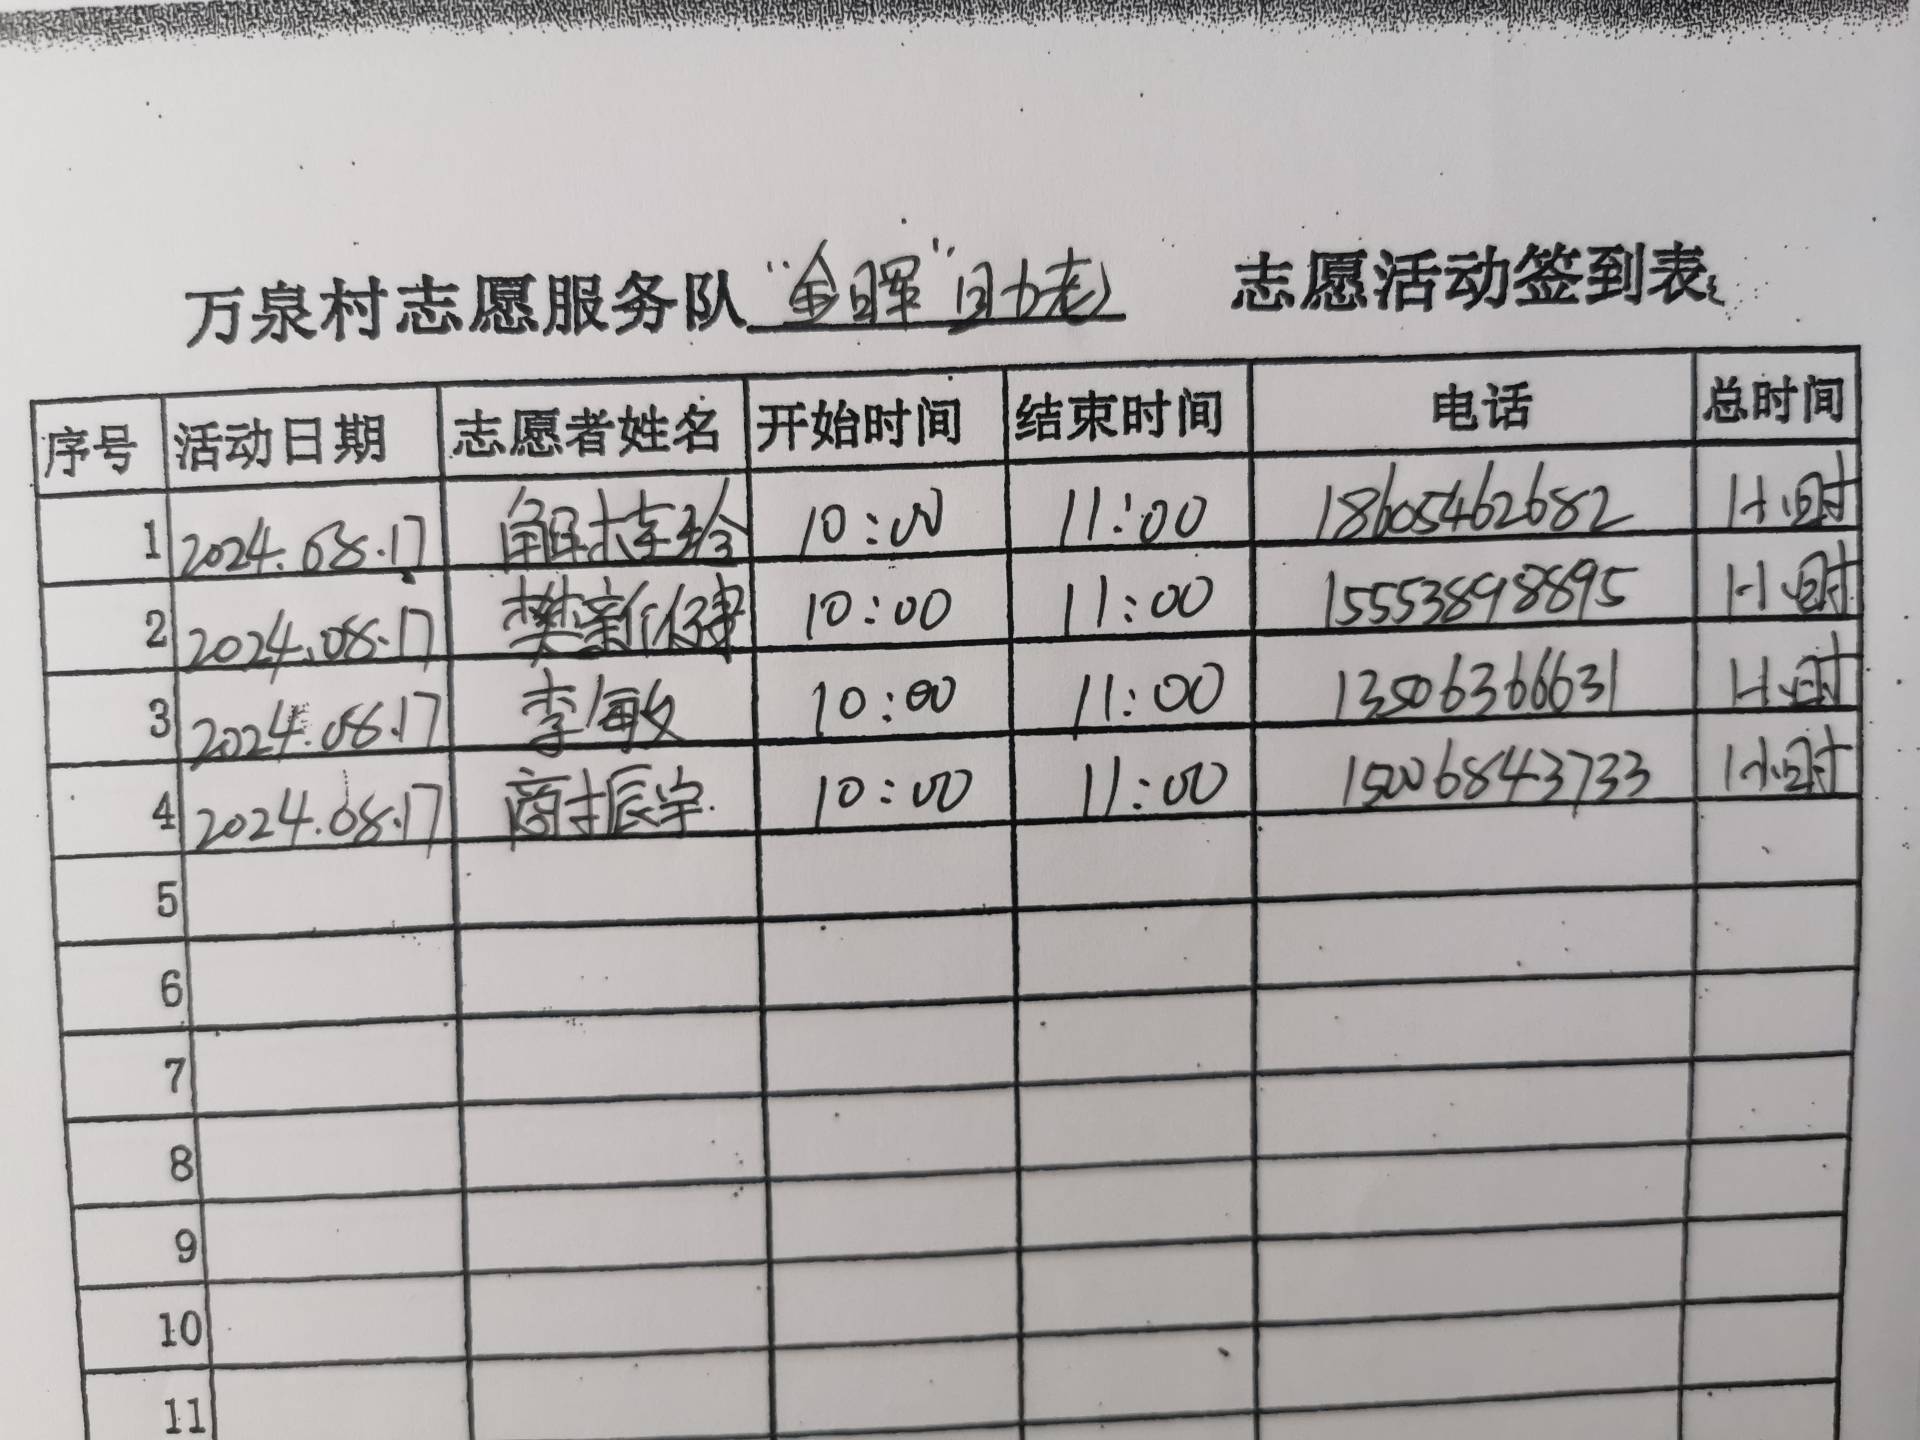 万泉村志愿服务队“金晖”助老 志愿活动签到表
序号 活动日期 志愿者姓名 开始时间 结束时间 电话 总时间
1 2024.08.17 10:00 11:00 18605462682 1小时
2 2024.08.17 樊新健 10:00 11:00 15553898895 1小时
3 2024.08.17 李敏 10:00 11:00 13506366631 1小时
4 2024.08.17 商振宇 10:00 11:00 15006843733 1小时
5
6
7
8
9
10
11